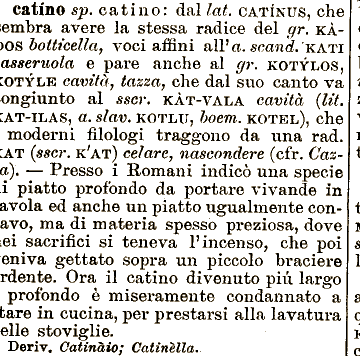 catíno sp. catino: dal lat. CATÍNUS, che
sembra avere la stessa radice del gr. KÀ-
DOS botticella, voci affini all'a. scand. KATI
casseruola e pare anche al gr. KOTÝLOS,
KOTÝLE cavità, tazza, che dal suo canto va
congiunto al sscr. KÀT-VALA cavità (lit.
KAT-ILAS, a. slav. KOTLU, boem. KOTEL), che
i moderni filologi traggono da una rad.
KAT (sscr. K'AT) celare, nascondere (cfr. Caz-
a). — Presso i Romani indicò una specie
di piatto profondo da portare vivande in
tavola ed anche un piatto ugualmente con-
cavo, ma di materia spesso preziosa, dove
nei sacrifici si teneva l'incenso, che poi
veniva gettato sopra un piccolo braciere
ardente. Ora il catino divenuto più largo
e profondo è miseramente condannato a
stare in cucina, per prestarsi alla lavatura
delle stoviglie.
Deriv. Catinàio; Catinèlla.